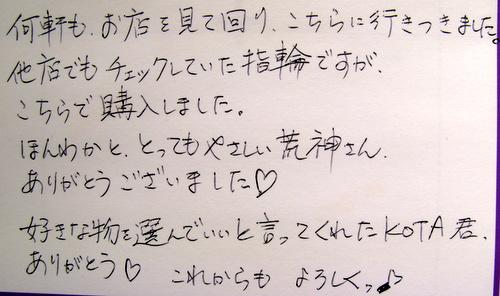 何軒も、お店を見て回り、こちらに行きつきました。
他店でもチェックしていた指輪ですが、
こちらで購入しました。
ほんわかと、とってもやさしい荒神さん、
ありがとうございました♡
好きな物を選んでいいと言ってくれたKOTA君、
ありがとう♡ これからも よろしくっ♪